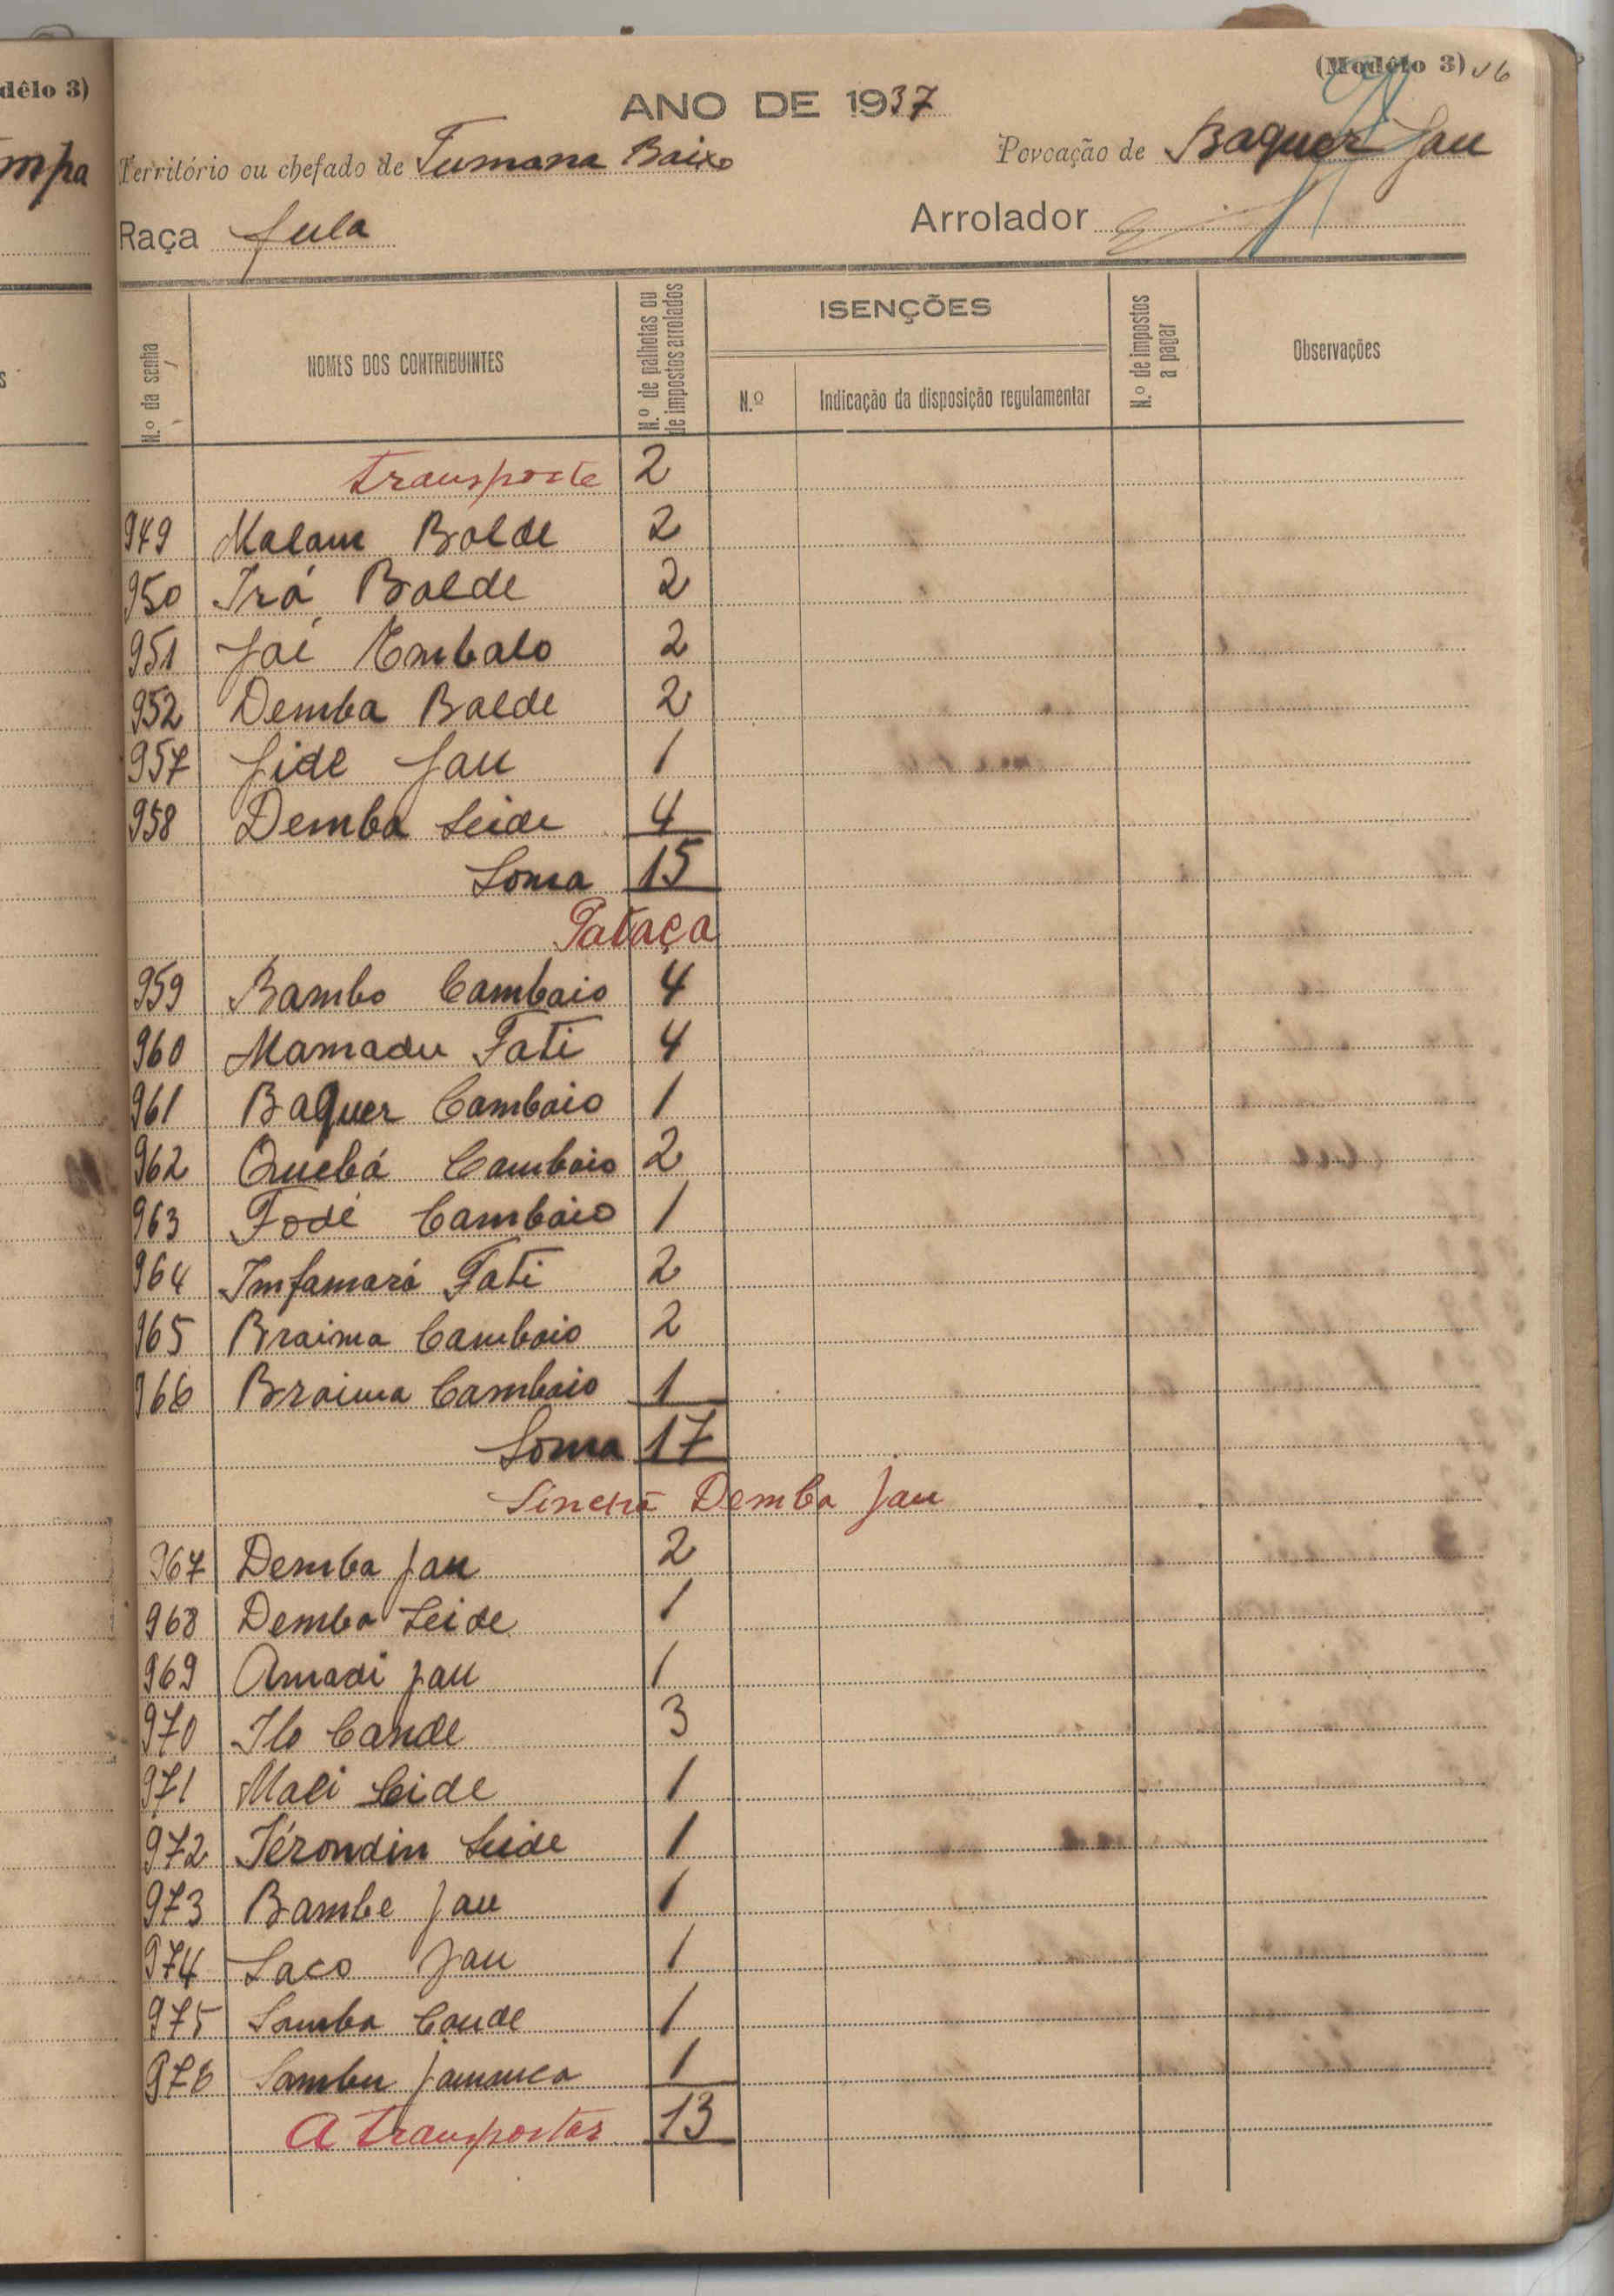 (Modêlo 3)
dêlo 3)
ANO DE 1937
mpa
Território ou chefado de Tumana Baixo
Povoação de Baquer Jau
Raça fula
Arrolador
N.º da senha
NOMES DOS CONTRIBUINTES
N.º de palhotas ou de impostos arrolados
ISENÇÕES
N.º
Indicação da disposição regulamentar
N.º de impostos a pagar
Observações
Transporte 2
949 Malam Balde 2
950 Irá Balde 2
951 Jaé Embalo 2
952 Demba Balde 2
957 Jide Jau 1
958 Demba Seide 4
Soma 15
Pataça
959 Bambo Cambaio 4
960 Mamadu Fati 4
961 Baquer Cambaio 1
962 Quebá Cambaio 2
963 Fodé Cambaio 1
964 Imfamará Fati 2
965 Braima Cambaio 2
966 Braima Cambaio 1
Soma 17
Sinchã Demba Jau
967 Demba Jau 2
968 Demba Seide 1
969 Amadi Jau 1
970 Ilo Cande 3
971 Mali Seide 1
972 Térondin Seide 1
973 Bambe Jau 1
974 Saco Jau 1
975 Samba Cande 1
976 Sambu Jamanca 1
A transportar 13